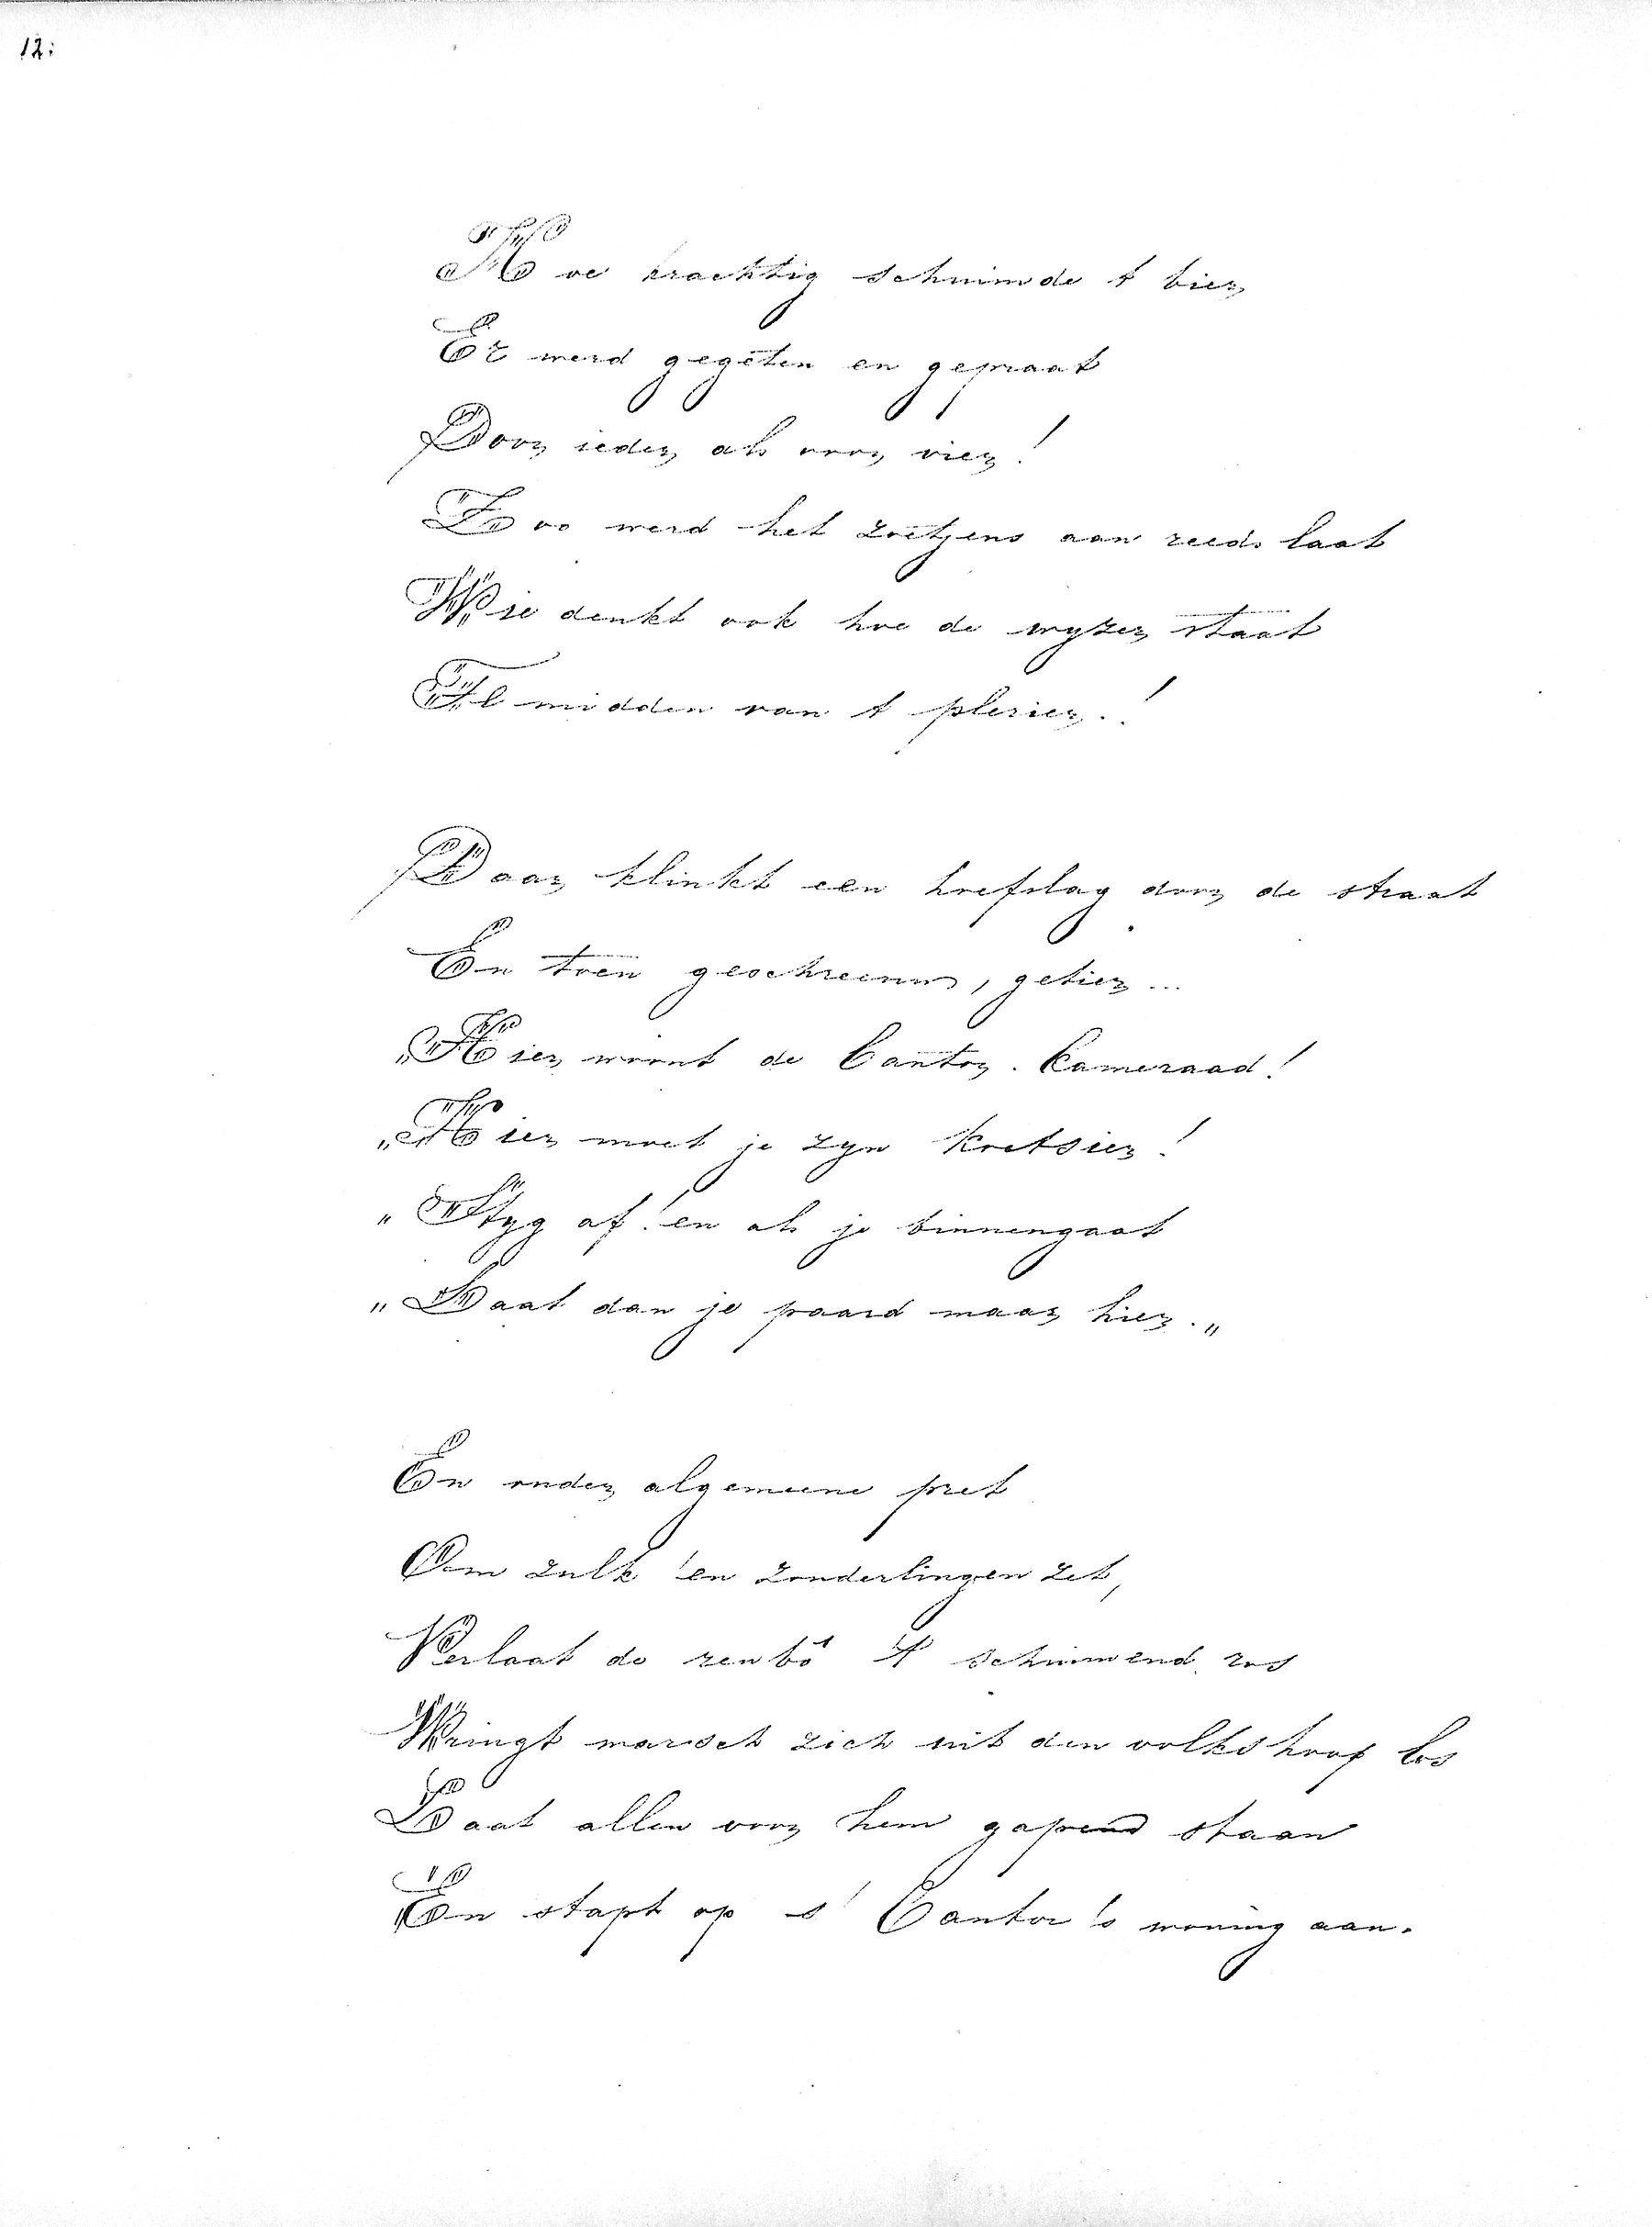 12:
Hoe krachtig schuimde t bier
Er werd gegeten en gepraat
Door ieder als voor vier!
Zoo werd het zoetjens aan reeds laat
Wie denkt ook hoe de wyzer staat
Te midden van t plezier.!
Daar klinkt een hoefslag door de straat
En toen geschreeuw, getier...
„Hier woont de Cantor. Kameraad!
„Hier moet je zyn Koetsier!
„Styg af! en als je binnengaat
„Laat dan je paard maar hier.„
En onder algemeene pret
Om zulk 'en zonderlingen zet,
Verlaat de renbô 't schuimend ros
Wringt marsch zich uit den volkshoop los
Laat allen voor hem gapend staan
En stapt op s' Cantor's woning aan.